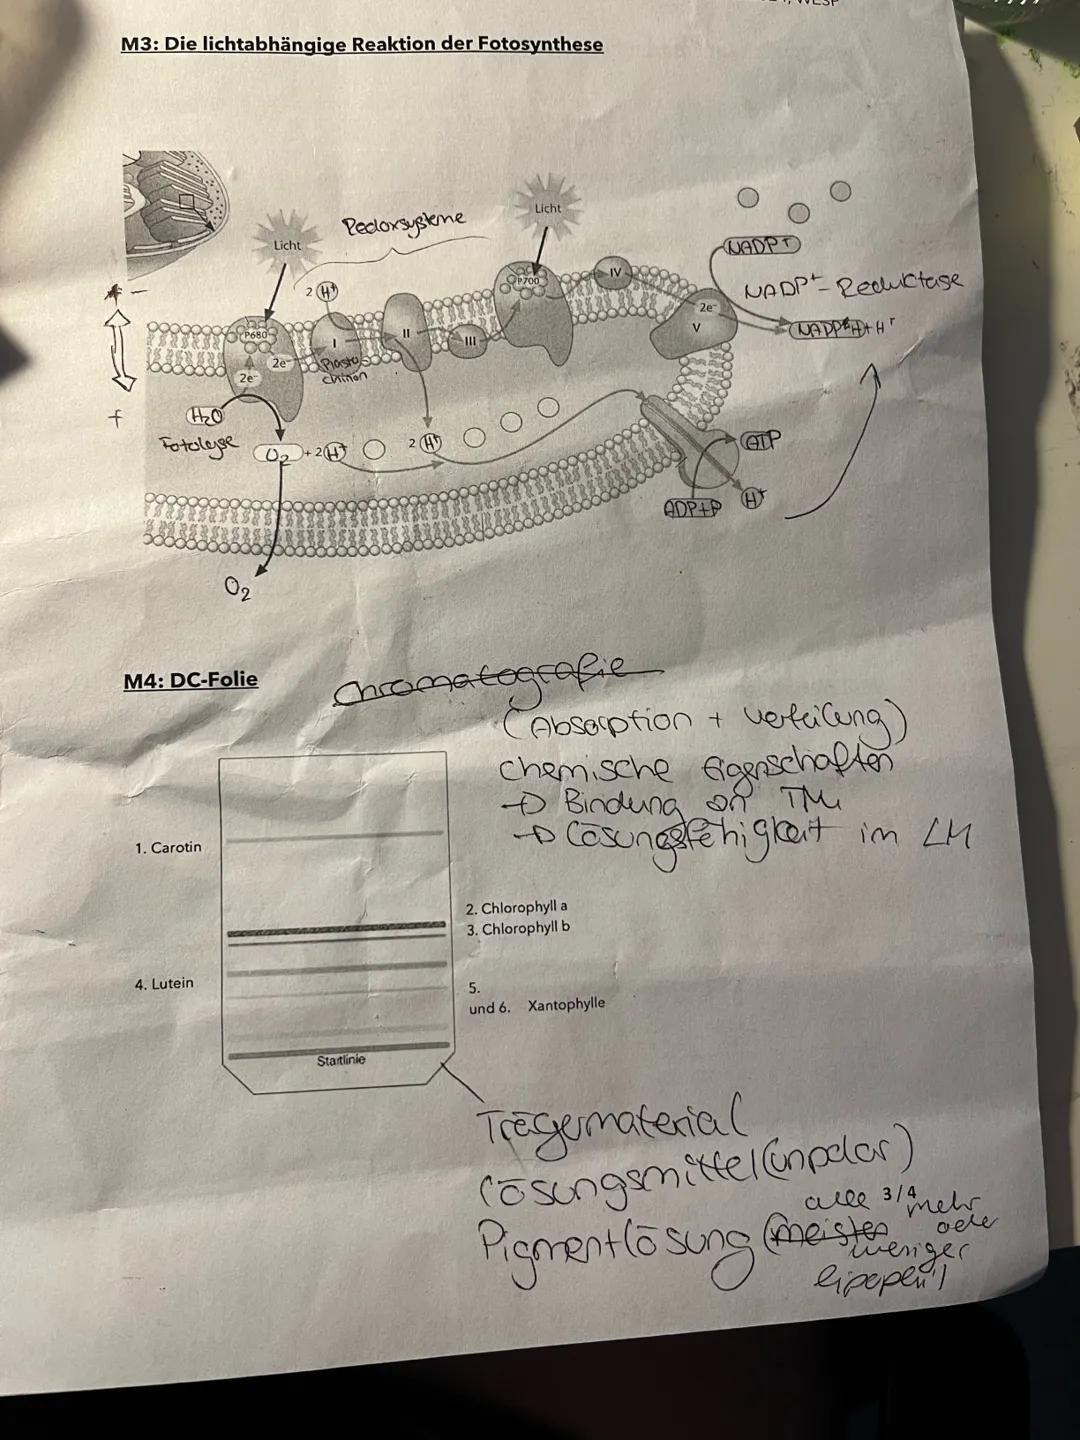 WESP
M3: Die lichtabhängige Reaktion der Fotosynthese
Licht
Redoxsysteme
Licht
NADP+
NADP+- Reductase
NADPH+H+
2 H+
P680
2e-
2e-
I
Plasto
chinon
II
III
P700
IV
2e-
V
-
+
H2O
Fotolyse
O2 + 2 H+
2 H+
ATP
ADP+P
H+
O2
M4: DC-Folie
Chromatografie
(Absorption + Verteilung)
chemische Eigenschaften
→ Bindung an TM
→ Lösungsfähigkeit im LM
1. Carotin
2. Chlorophyll a
3. Chlorophyll b
4. Lutein
5.
und 6. Xantophylle
Startlinie
Trägermaterial
Lösungsmittel (unpolar)
Pigmentlösung (meisten
alle mehr
oder
weniger
lipophil)
3/4